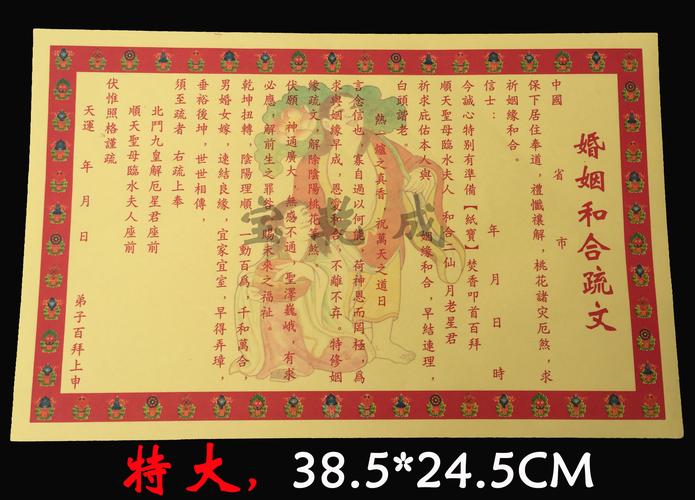 婚姻和合疏文
中國　省　市
保下居住奉道，禮懺禳解，桃花諸灾厄煞，求
祈姻緣和合。
信士：　年　月　日　時
今誠心特別有準備【紙寶】焚香叩首百拜
順天聖母臨水夫人　和合二仙　月老星君
祈求庇佑本人與　姻緣和合，早結連理，
白頭諧老。
熱一爐之真香　祝萬天之道日
言念信也，寡自過以何能，荷神恩而罔極，爲
求與姻緣早成，恩愛和合，不離不弃。特修姻
緣疏文，解除陰陽桃花等煞
伏願　神通廣大　無感不通　聖澤巍峨，有求
必應，解前生之罪咎，賜未來之福祉。
乾坤扭轉，陰陽理順，一動百爲，千和萬合，
男婚女嫁，速結良緣，宜家宜室，早得弄璋，
垂裕後坤，世世相傳，
須至疏者　右疏上奉
北鬥九皇解厄星君座前
順天聖母臨水夫人座前
伏惟照格謹疏
天運　年　月　日　弟子百拜上申
宝彝成
特大，38.5*24.5CM